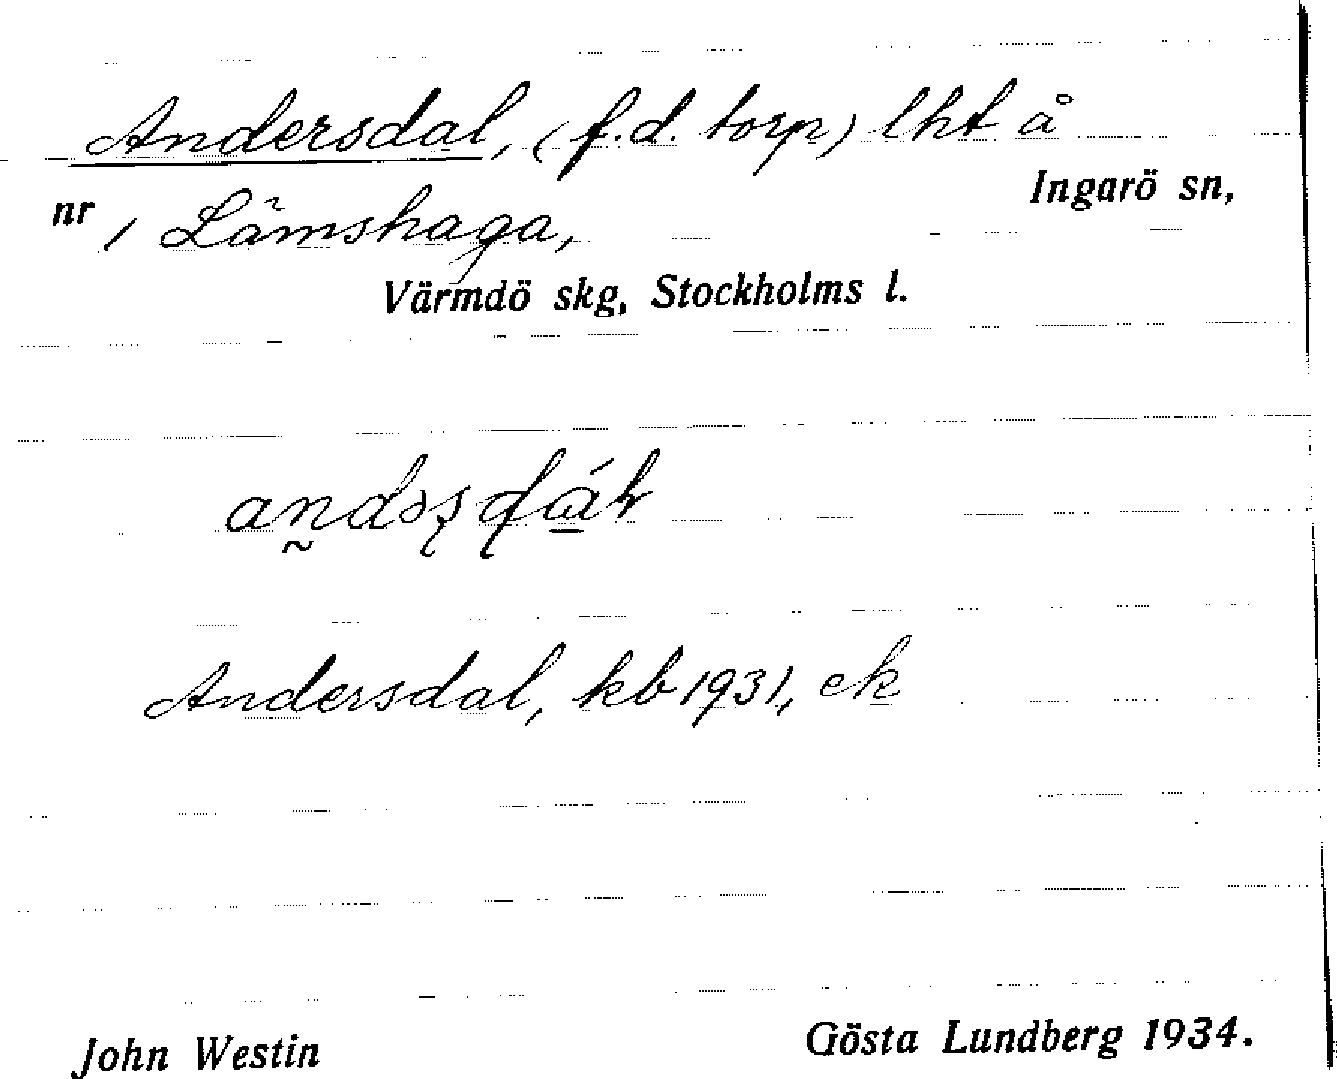 Andersdal, (f.d. torp) lht å
Ingarö sn,
nr 1 Lämshaga,
Värmdö skg, Stockholms l.
Andersdal, kb 1931, ek
John Westin
Gösta Lundberg 1934.